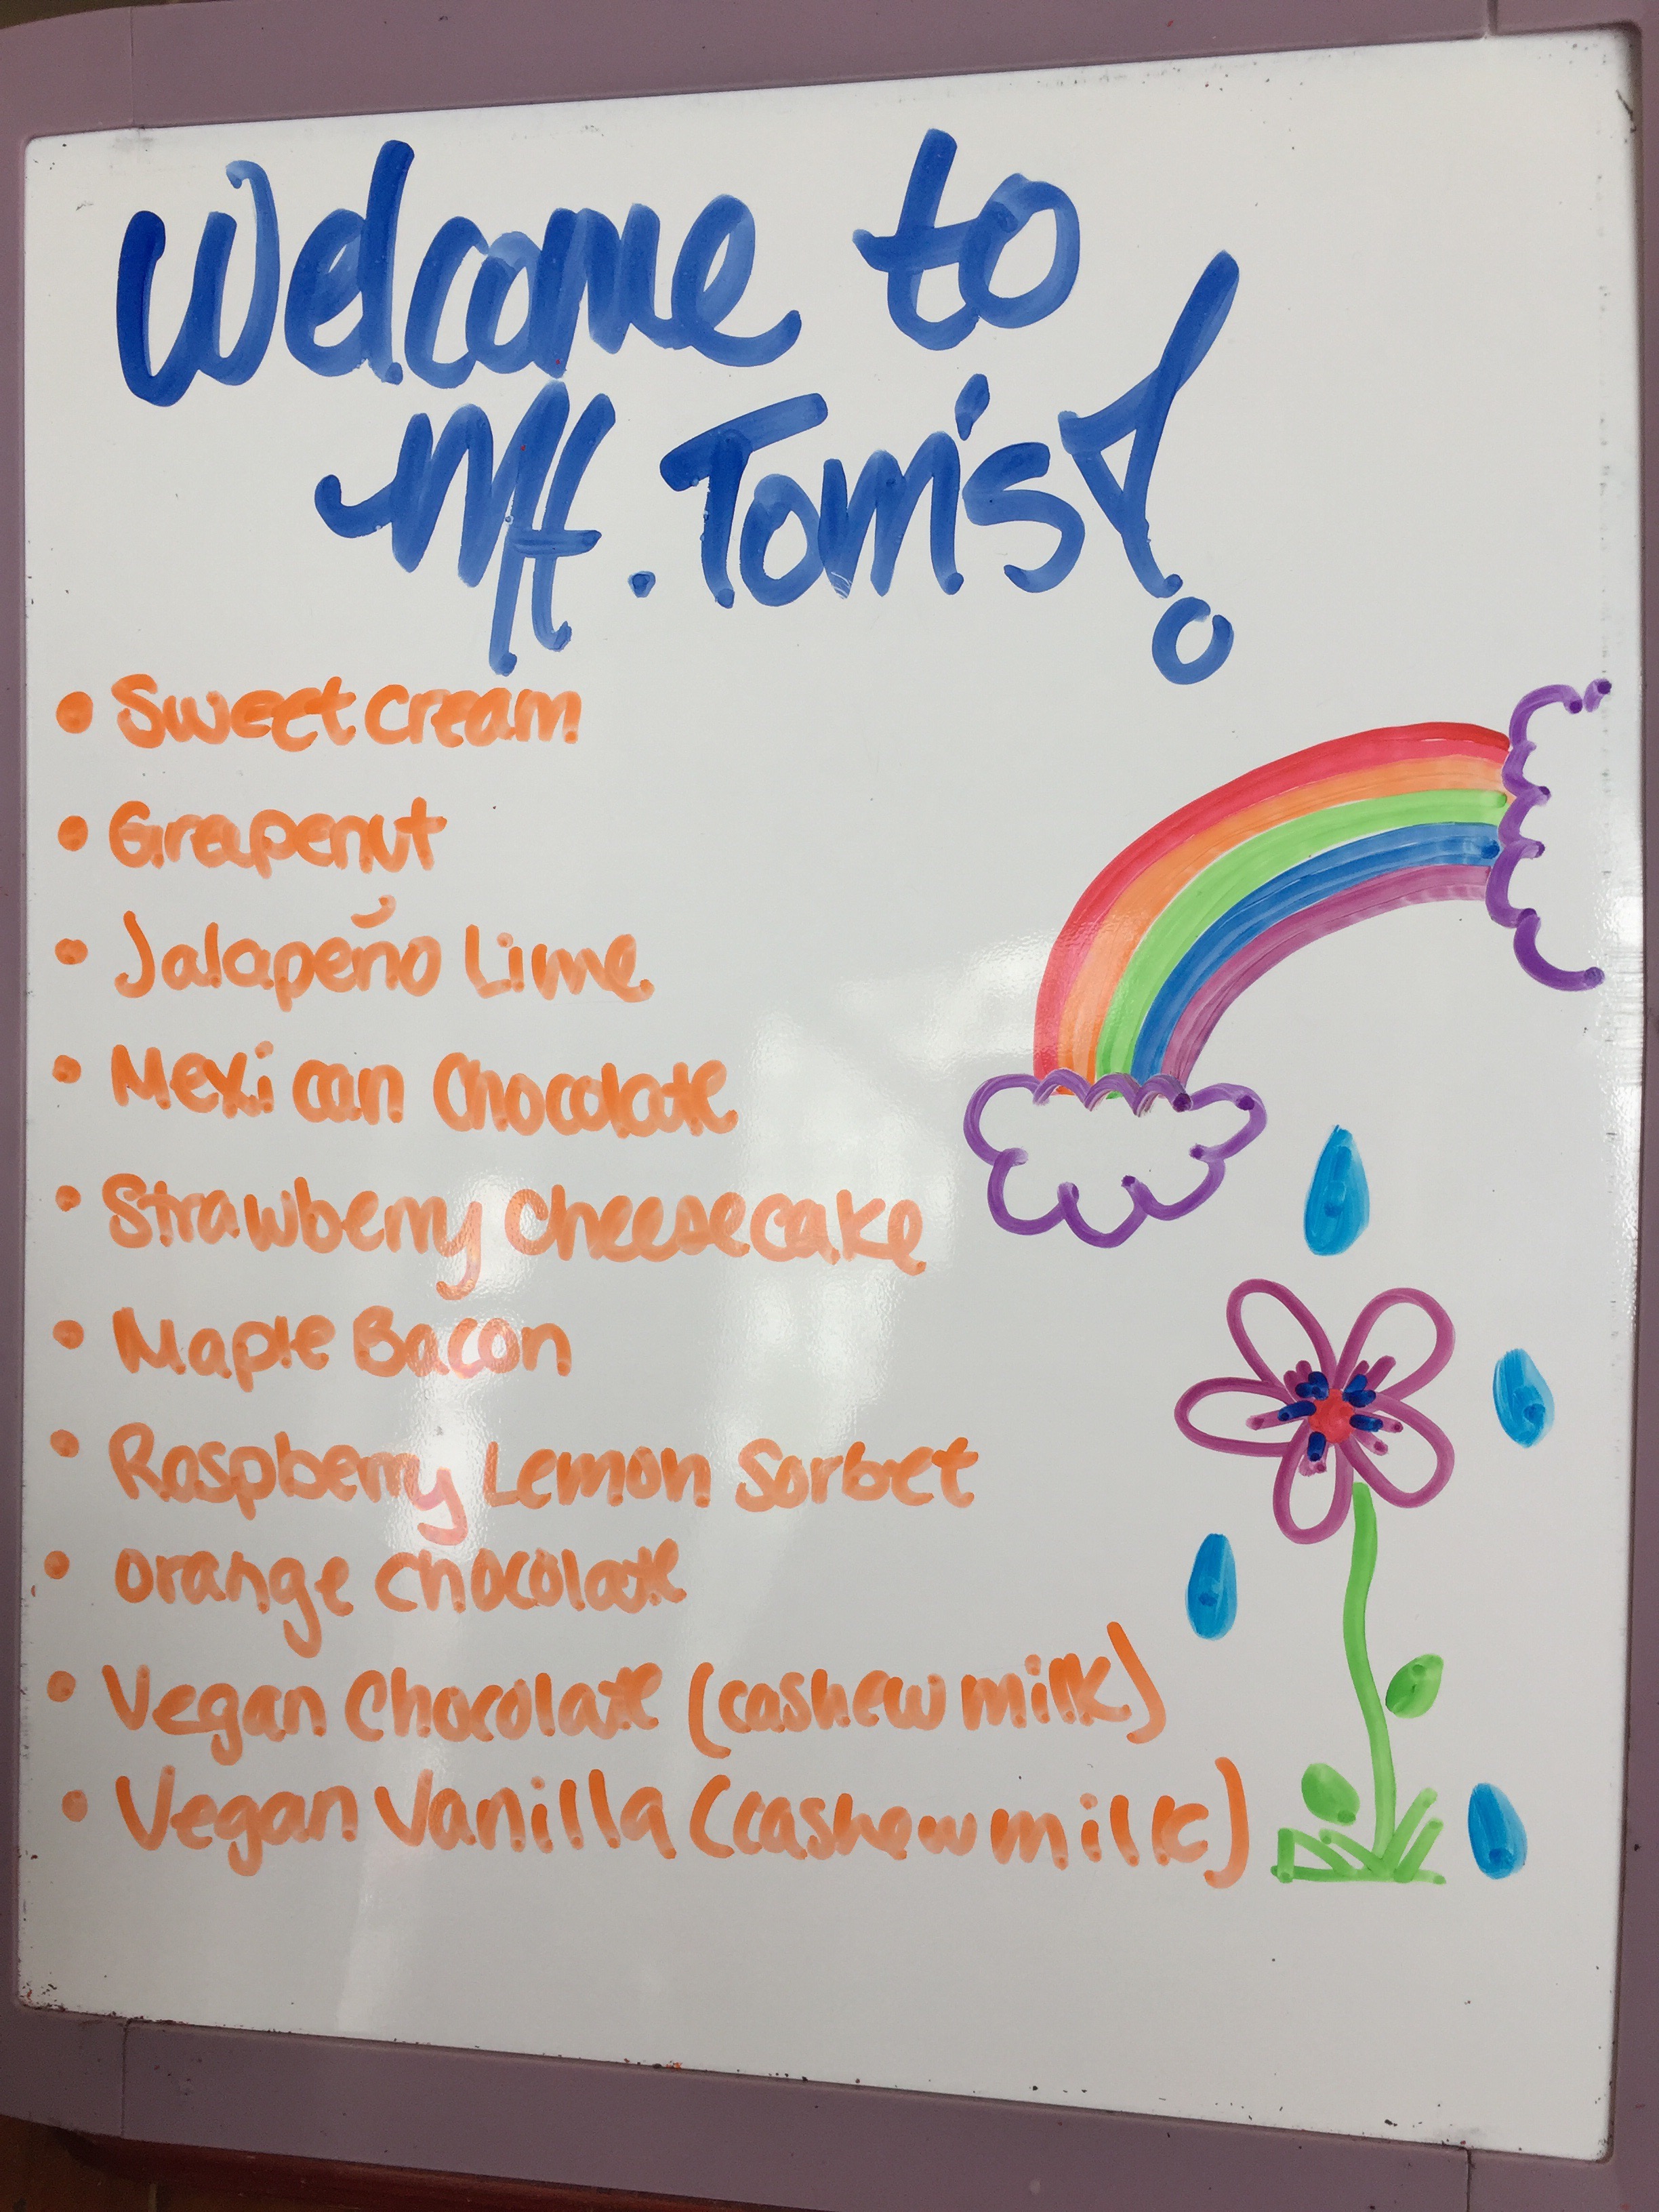 Welcome to
Mt. Tom's!
• Sweet Cream
• Grapenut
• Jalapeño Lime
• Mexican Chocolate
• Strawberry Cheesecake
• Maple Bacon
• Raspberry Lemon Sorbet
• Orange Chocolate
• Vegan Chocolate (cashew milk)
• Vegan Vanilla (cashew milk)